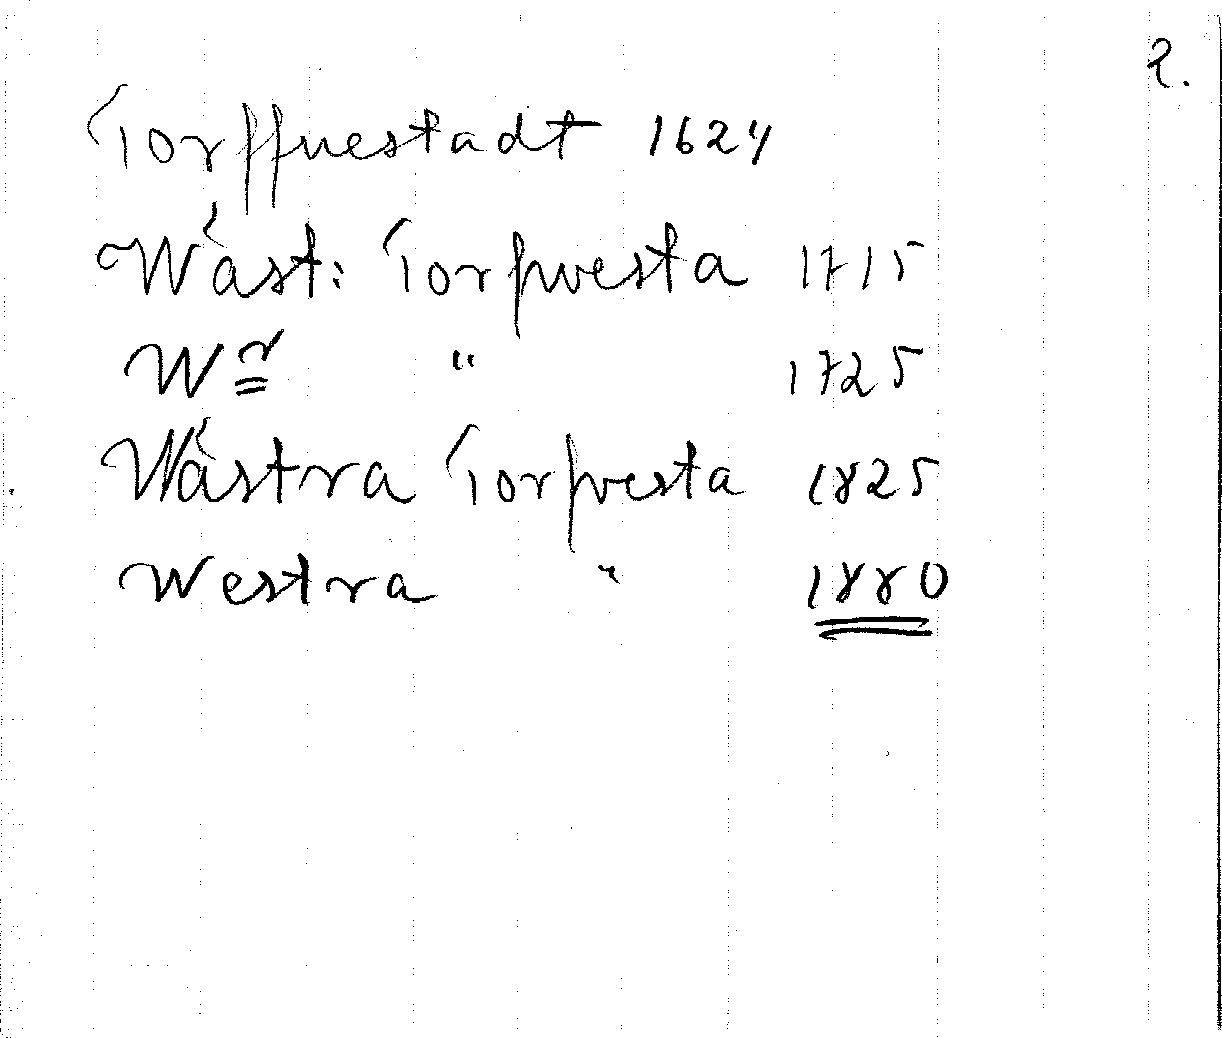 2.
Torffuestadt 1624
Wäst: Torfwesta 1715
Wr " 1725
Wästra Torfvesta 1825
Westra " 1880